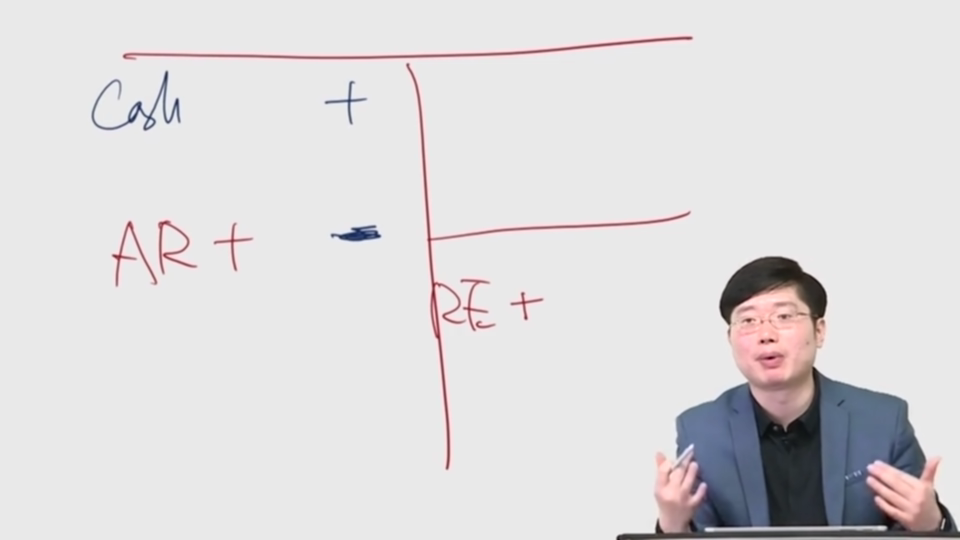 Cash +
AR + -
RE +